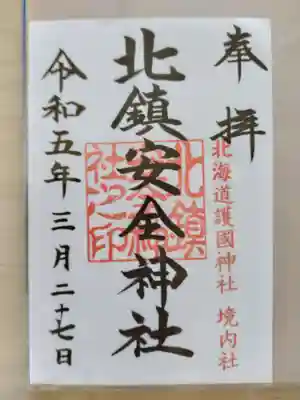 奉拝
北海道護國神社 境内社
北鎮安全神社
北鎮
安全神
社之印
令和五年三月二十七日